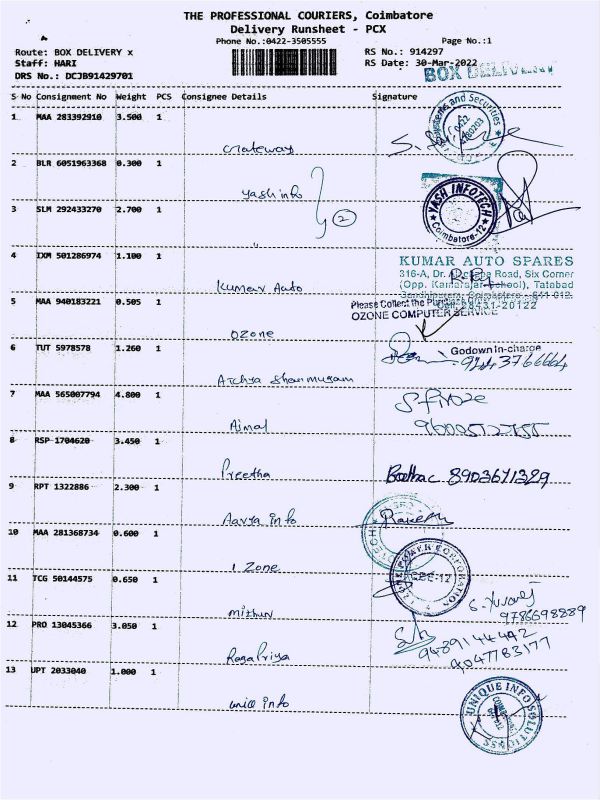 THE PROFESSIONAL COURIERS, Coimbatore
Delivery Runsheet - PCX
Phone No.:0422-3505555
Page No.:1
Route: BOX DELIVERY x
RS No.: 914297
Staff: HARI
RS Date: 30-Mar-2022
DRS No.: DCJB91429701
BOX DELIVERY
S No Consignment No Weight PCS Consignee Details Signature
1 MAA 283392910 3.500 1
Gateway
Systems and Securities
2 BLR 6051963368 0.300 1
yash info
2
YASH INFOTECH
Coimbatore-12
3 SLM 292433270 2.700 1
"
4 IXM 501286974 1.100 1
Kumar Auto
KUMAR AUTO SPARES
316-A, Dr. Road, Six Corner
(Opp. Kamarajar School), Tatabad
Gandhipuram, Coimbatore - 641 012.
5 MAA 940183221 0.505 1
Please Collect the
OZONE COMPUTER SERVICE
Ozone
6 TUT 5978578 1.260 1
Godown in-charge
Archya Shanmugam
7 MAA 565007794 4.800 1
S. firoze
Ajmal
8 RSP 1704620 3.450 1
Preetha
8903671329
9 RPT 1322886 2.300 1
Aavya info
Rakesh
10 MAA 281368734 0.600 1
1 Zone
POWER CORPORATION
CBE-12
11 TCG 50144575 0.650 1
mithun
9786698889
12 PRO 13045366 3.050 1
9489144492
9047783177
Ragapriya
13 UPT 2033040 1.000 1
unice info
UNIQUE INFO SOLUTIONS